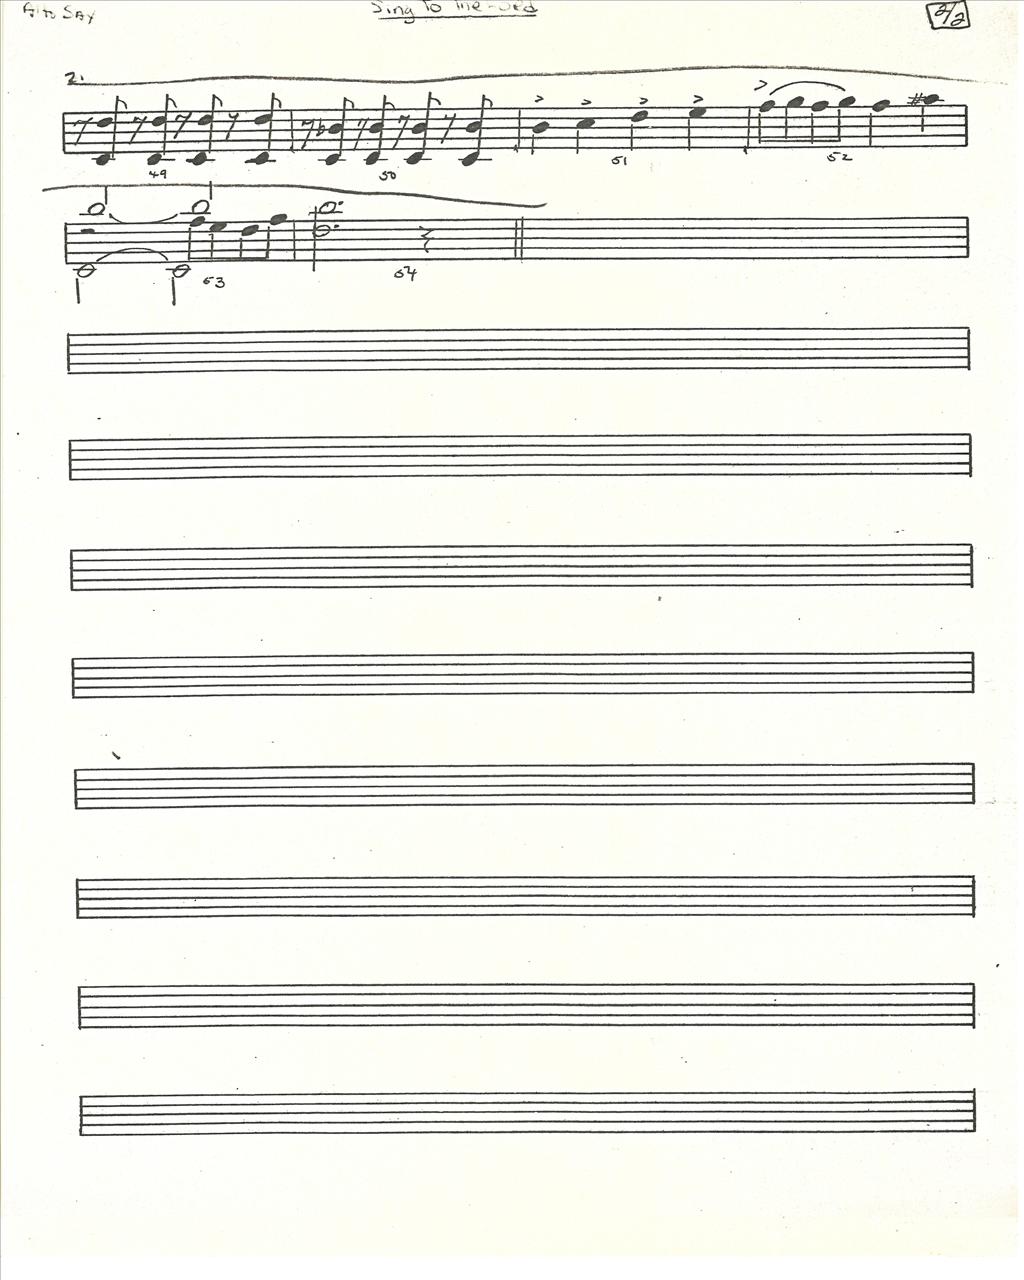 Alto Sax
Sing To The Lord
2/2
2.
49 50 51 52
53 54